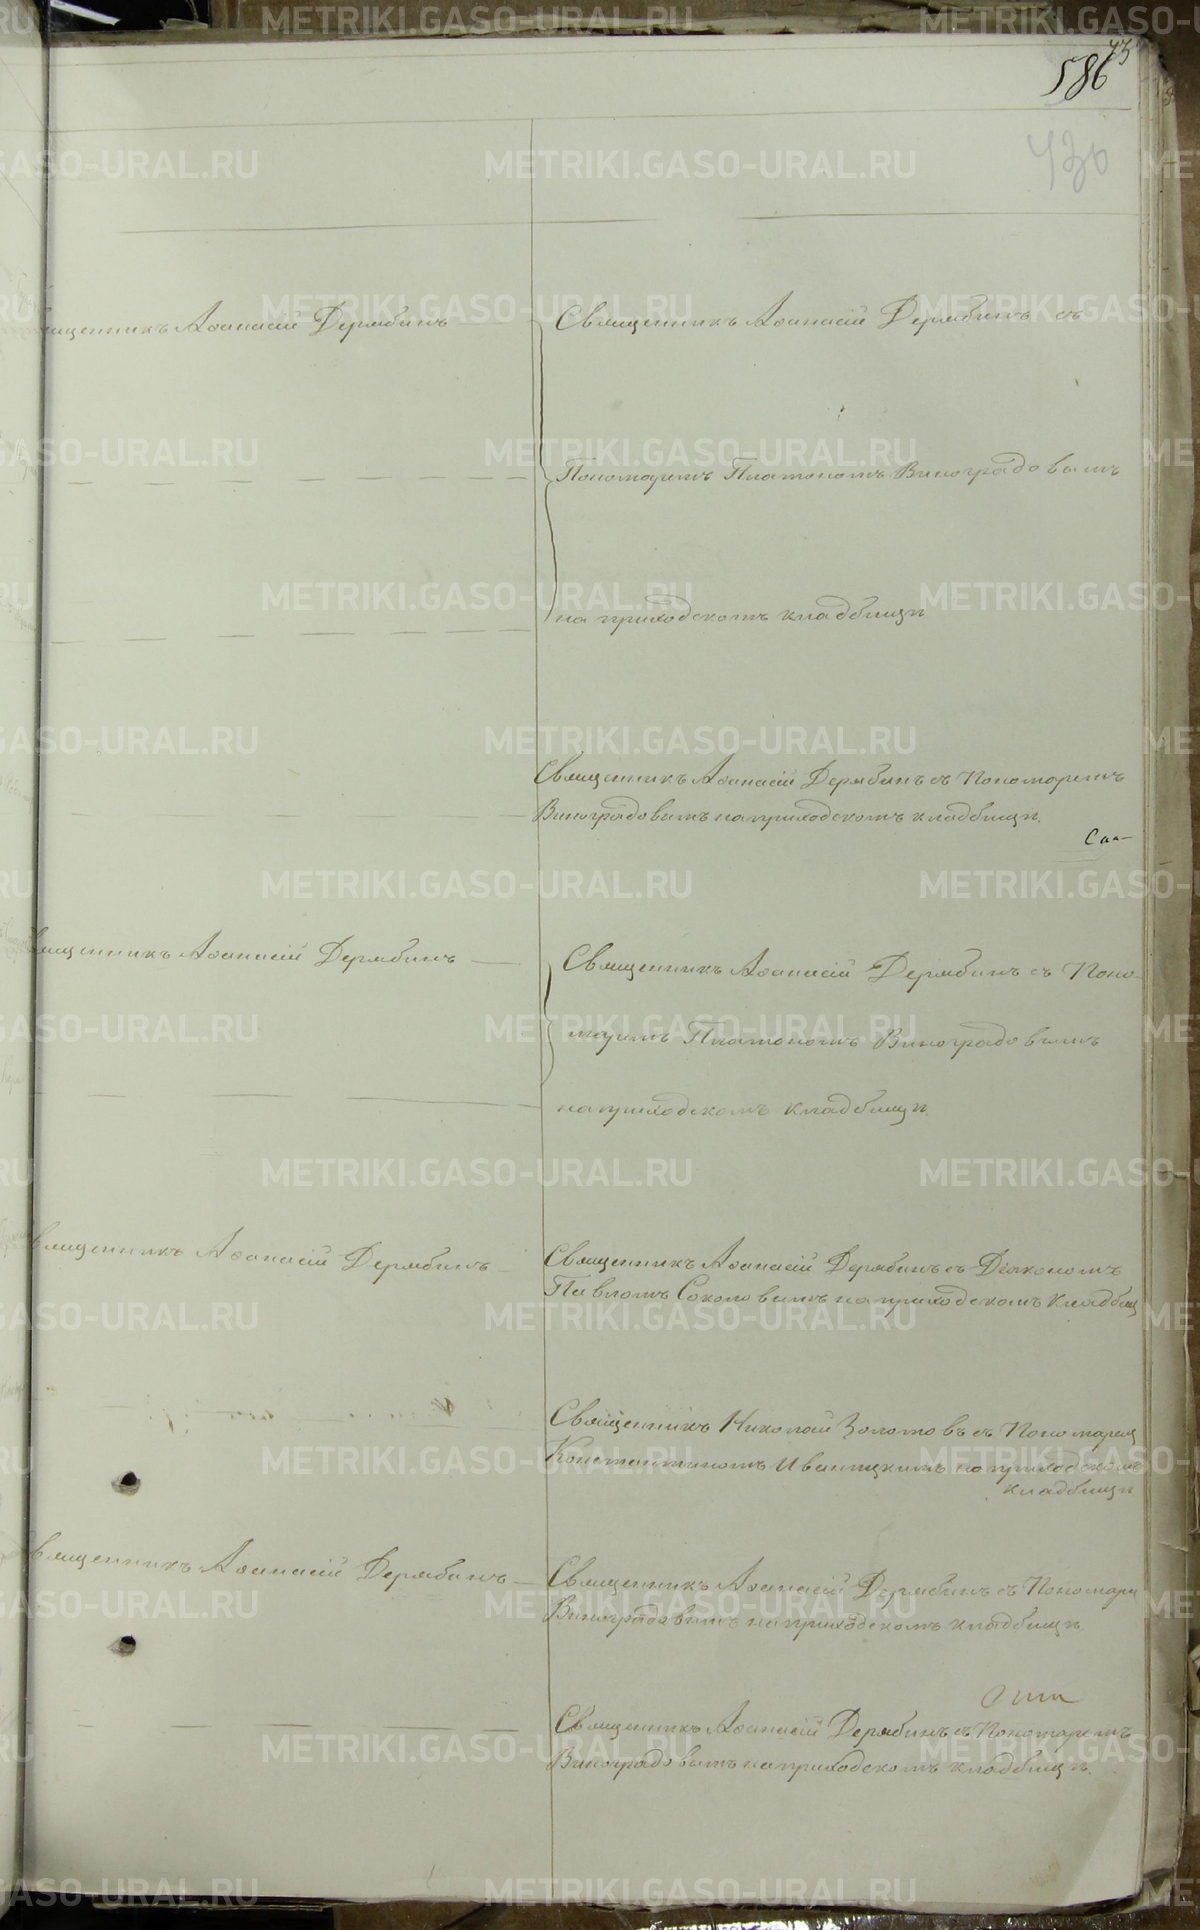 586
Священникъ Аѳанасій Дерябинъ
Священникъ Аѳанасій Дерябинъ съ
Пономаремъ Платономъ Виноградовымъ
на приходскомъ кладбищѣ
Священникъ Аѳанасій Дерябинъ съ Пономаремъ
Виноградовымъ на приходскомъ кладбищѣ.
Священникъ Аѳанасій Дерябинъ
Священникъ Аѳанасій Дерябинъ съ Поно-
маремъ Платономъ Виноградовымъ
на приходскомъ кладбищѣ.
Священникъ Аѳанасій Дерябинъ
Священникъ Аѳанасій Дерябинъ съ Діакономъ
Павломъ Соколовымъ на приходскомъ кладбищ
Священникъ Николай Золотовъ съ Пономарем
Константиномъ Иваницкимъ на приходскомъ
кладбищѣ
Священникъ Аѳанасій Дерябинъ
Священникъ Аѳанасій Дерябинъ съ Пономаре
Виноградовымъ на приходскомъ кладбищѣ.
Священникъ Аѳанасій Дерябинъ съ Пономаремъ
Виноградовымъ на приходскомъ кладбищѣ.
METRIKI.GASO-URAL.RU